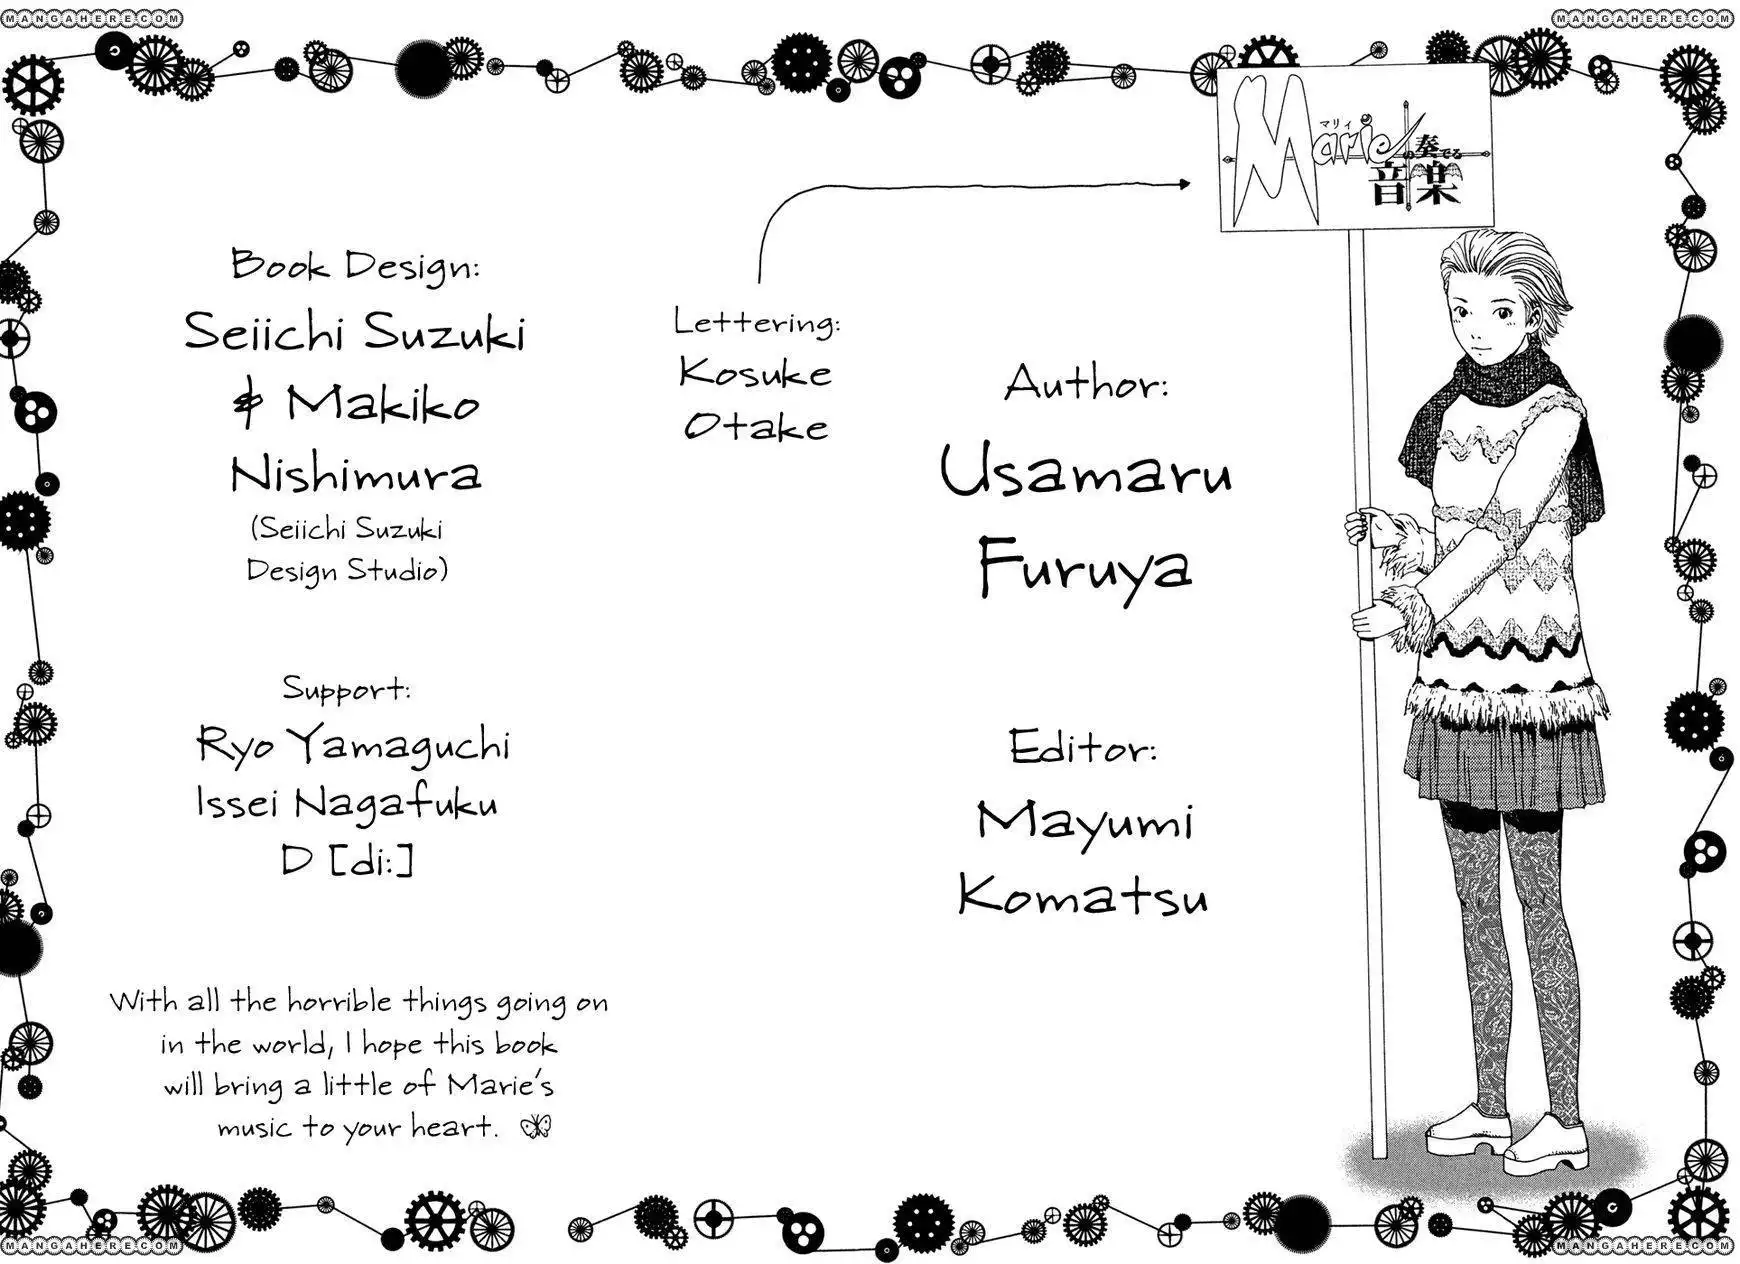 MANGAHERE.COM
MANGAHERE.COM
Marie
マリィ
の奏でる
音楽
Book Design:
Seiichi Suzuki
& Makiko
Nishimura
(Seiichi Suzuki
Design Studio)
Lettering:
Kosuke
Otake
Author:
Usamaru
Furuya
Support:
Ryo Yamaguchi
Issei Nagafuku
D [di:]
Editor:
Mayumi
Komatsu
With all the horrible things going on
in the world, I hope this book
will bring a little of Marie's
music to your heart.
MANGAHERE.COM
MANGAHERE.COM